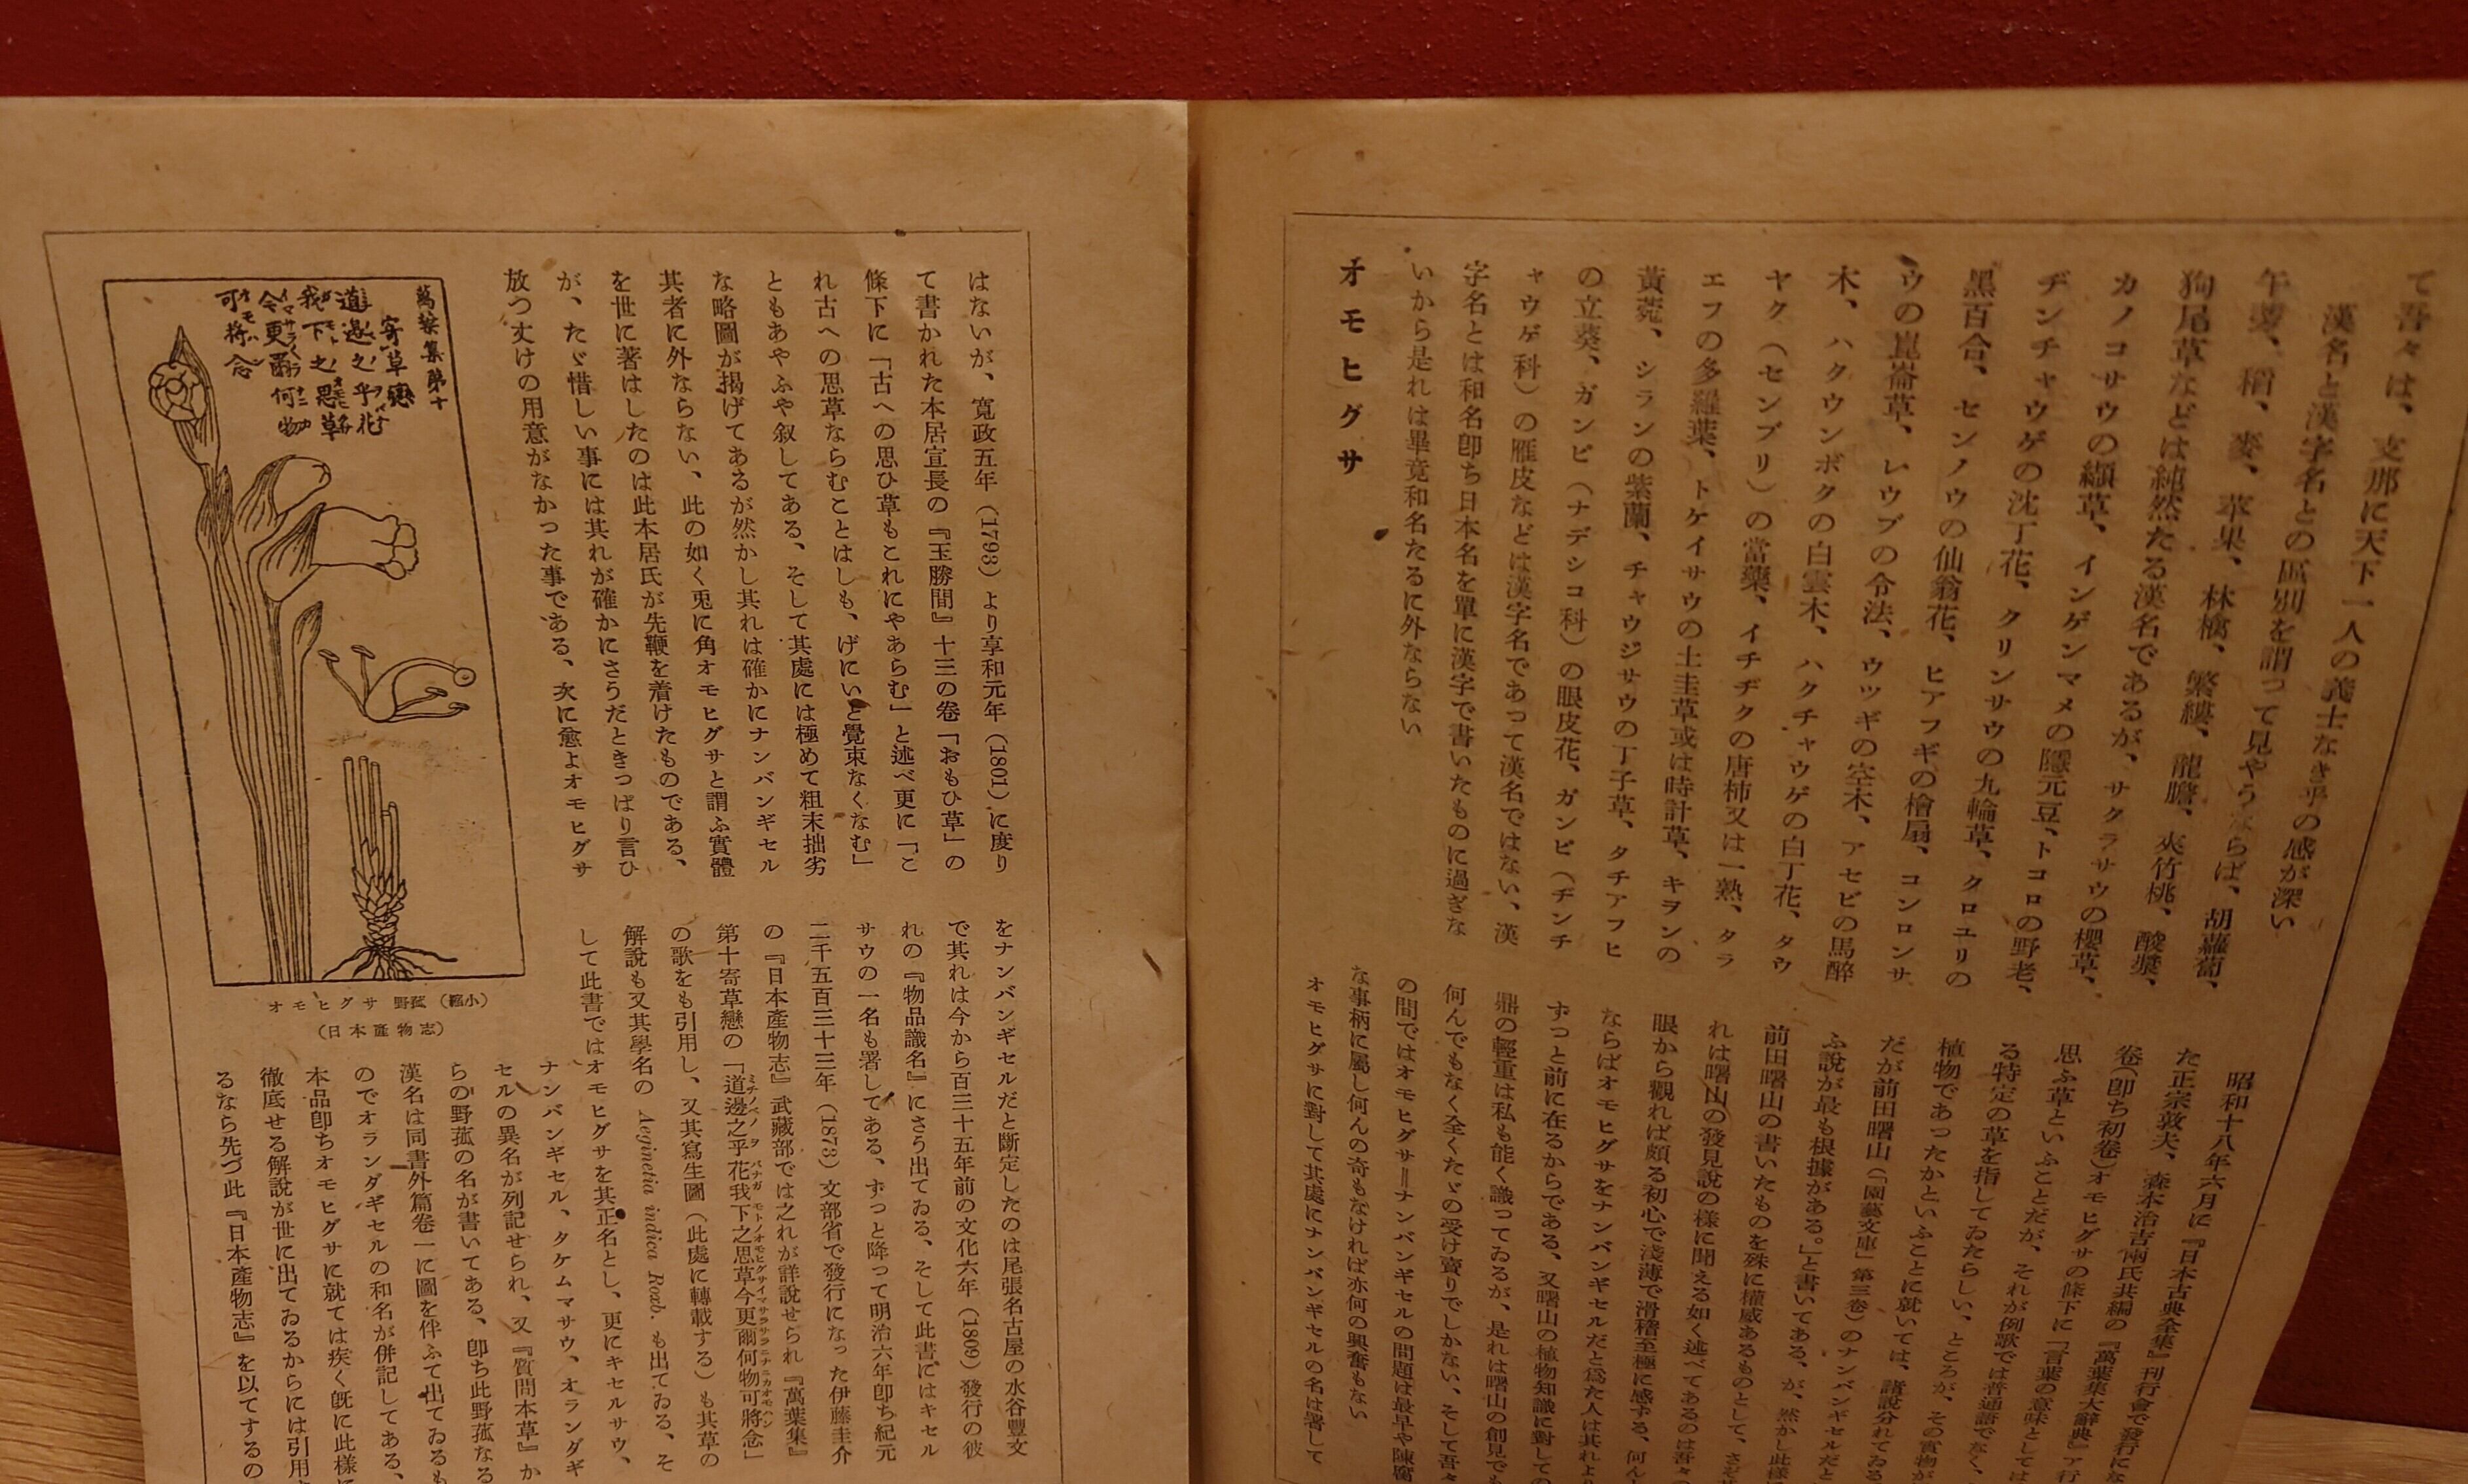 て吾々は、支那に天下一人の義士なき乎の感が深い
漢名と漢字名との區別を謂って見やうならば、胡蘿蔔、
牛蒡、稻、麥、苹果、林檎、繁縷、龍膽、夾竹桃、酸漿、
狗尾草などは純然たる漢名であるが、サクラサウの櫻草、
カノコサウの纈草、インゲンマメの隱元豆、トコロの野老、
ヂンチャウゲの沈丁花、クリンサウの九輪草、クロユリの
黑百合、センノウの仙翁花、ヒアフギの檜扇、コンロンサ
ウの崑崙草、レウブの令法、ウツギの空木、アセビの馬醉
木、ハクウンボクの白雲木、ハクチャウゲの白丁花、タウ
ヤク（センブリ）の當藥、イチヂクの唐柿又は一熟、タラ
エフの多羅葉、トケイサウの土圭草或は時計草、キヲンの
黃菀、シランの紫蘭、チャウジサウの丁子草、タチアフヒ
の立葵、ガンピ（ナデシコ科）の眼皮花、ガンピ（ヂンチ
ャウゲ科）の雁皮などは漢字名であって漢名ではない、漢
字名とは和名卽ち日本名を單に漢字で書いたものに過ぎな
いから是れは畢竟和名たるに外ならない
オモヒグサ
昭和十八年六月に『日本古典全集』刊行會で發行にな
た正宗敦夫、森本治吉兩氏共編の『萬葉集大辭典』ア行
卷（卽ち初卷）オモヒグサの條下に「言葉の意味としては
思ふ草といふことだが、それが例歌では普通語でなく、
る特定の草を指してゐたらしい、ところが、その實物が
植物であったかといふことに就いては、諸說分れてゐる
だが前田曙山（「園藝文庫」第三卷）のナンバンギセルだと
ふ說が最も根據がある。」と書いてある、が、然かし此樣
前田曙山の書いたものを殊に權威あるものとして、さぞ
れは曙山の發見說の樣に聞える如く述べてあるのは吾々の
眼から觀れば頗る初心で淺薄で滑稽至極に感ずる、何ん
ならばオモヒグサをナンバンギセルだと爲た人は其れより
ずっと前に在るからである、又曙山の植物知識に對しての
鼎の輕重は私も能く識ってゐるが、是れは曙山の創見でも
何んでもなく全くたゞの受け賣りでしかない、そして吾々
の間ではオモヒグサ＝ナンバンギセルの問題は最早や陳腐
な事柄に屬し何んの奇もなければ亦何の興奮もない
オモヒグサに對して其處にナンバンギセルの名は署して
はないが、寬政五年（1793）より享和元年（1801）に度り
て書かれた本居宣長の『玉勝間』十三の卷「おもひ草」の
條下に「古への思ひ草もこれにやあらむ」と述べ更に「こ
れ古への思草ならむことはしも、げにいと覺束なくなむ」
ともあやふや叙してある、そして其處には極めて粗末拙劣
な略圖が揭げてあるが然かし其れは確かにナンバンギセル
其者に外ならない、此の如く兎に角オモヒグサと謂ふ實體
を世に著はしたのは此本居氏が先鞭を着けたものである、
が、たゞ惜しい事には其れが確かにさうだときっぱり言ひ
放つ丈けの用意がなかった事である、次に愈よオモヒグサ
をナンバンギセルだと斷定したのは尾張名古屋の水谷豐文
で其れは今から百三十五年前の文化六年（1809）發行の彼
れの『物品識名』にさう出てゐる、そして此書にはキセル
サウの一名も署してある、ずっと降って明治六年卽ち紀元
二千五百三十三年（1873）文部省で發行になった伊藤圭介
の『日本產物志』武藏部では之れが詳說せられ『萬葉集』
第十寄草戀の「道邊之乎花我下之思草今更爾何物可將念」
ミチノベノヲバナガモトノオモヒグサイマサラサラニナニカオモハン
の歌をも引用し、又其寫生圖（此處に轉載する）も其草の
解說も又其學名の Aeginetia indica Roxb. も出てゐる、そ
して此書ではオモヒグサを其正名とし、更にキセルサウ、
ナンバンギセル、タケムマサウ、オランダギ
セルの異名が列記せられ、又『質問本草』か
らの野菰の名が書いてある、卽ち此野菰なる
漢名は同書外篇卷一に圖を伴ふて出てゐるも
のでオランダギセルの和名が併記してある、
本品卽ちオモヒグサに就ては疾く旣に此樣に
徹底せる解說が世に出てゐるからには引用
るなら先づ此『日本產物志』を以てするの
萬葉集第十
寄草戀
道邊之乎花
我下之思草
今更爾何物
可將念
オモヒグサ 野菰（縮小）
（日本產物志）